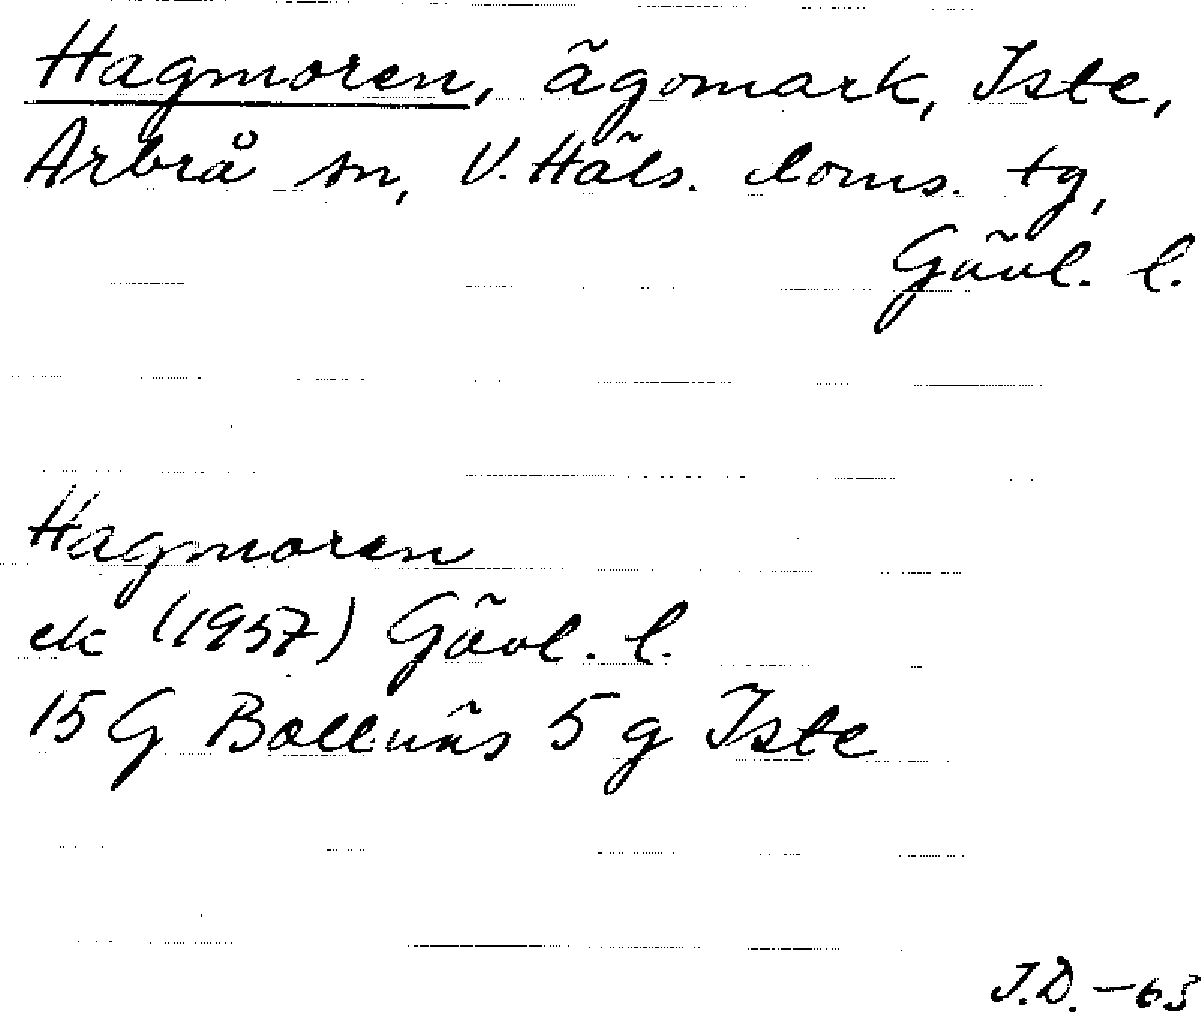 Hagmoren, ägomark, Iste,
Arbrå sn, V. Häls. doms. tg,
Gävl. l.
Hagmoren
ek (1957) Gävl. l.
15 G Bollnäs 5 g Iste
J.D. -63